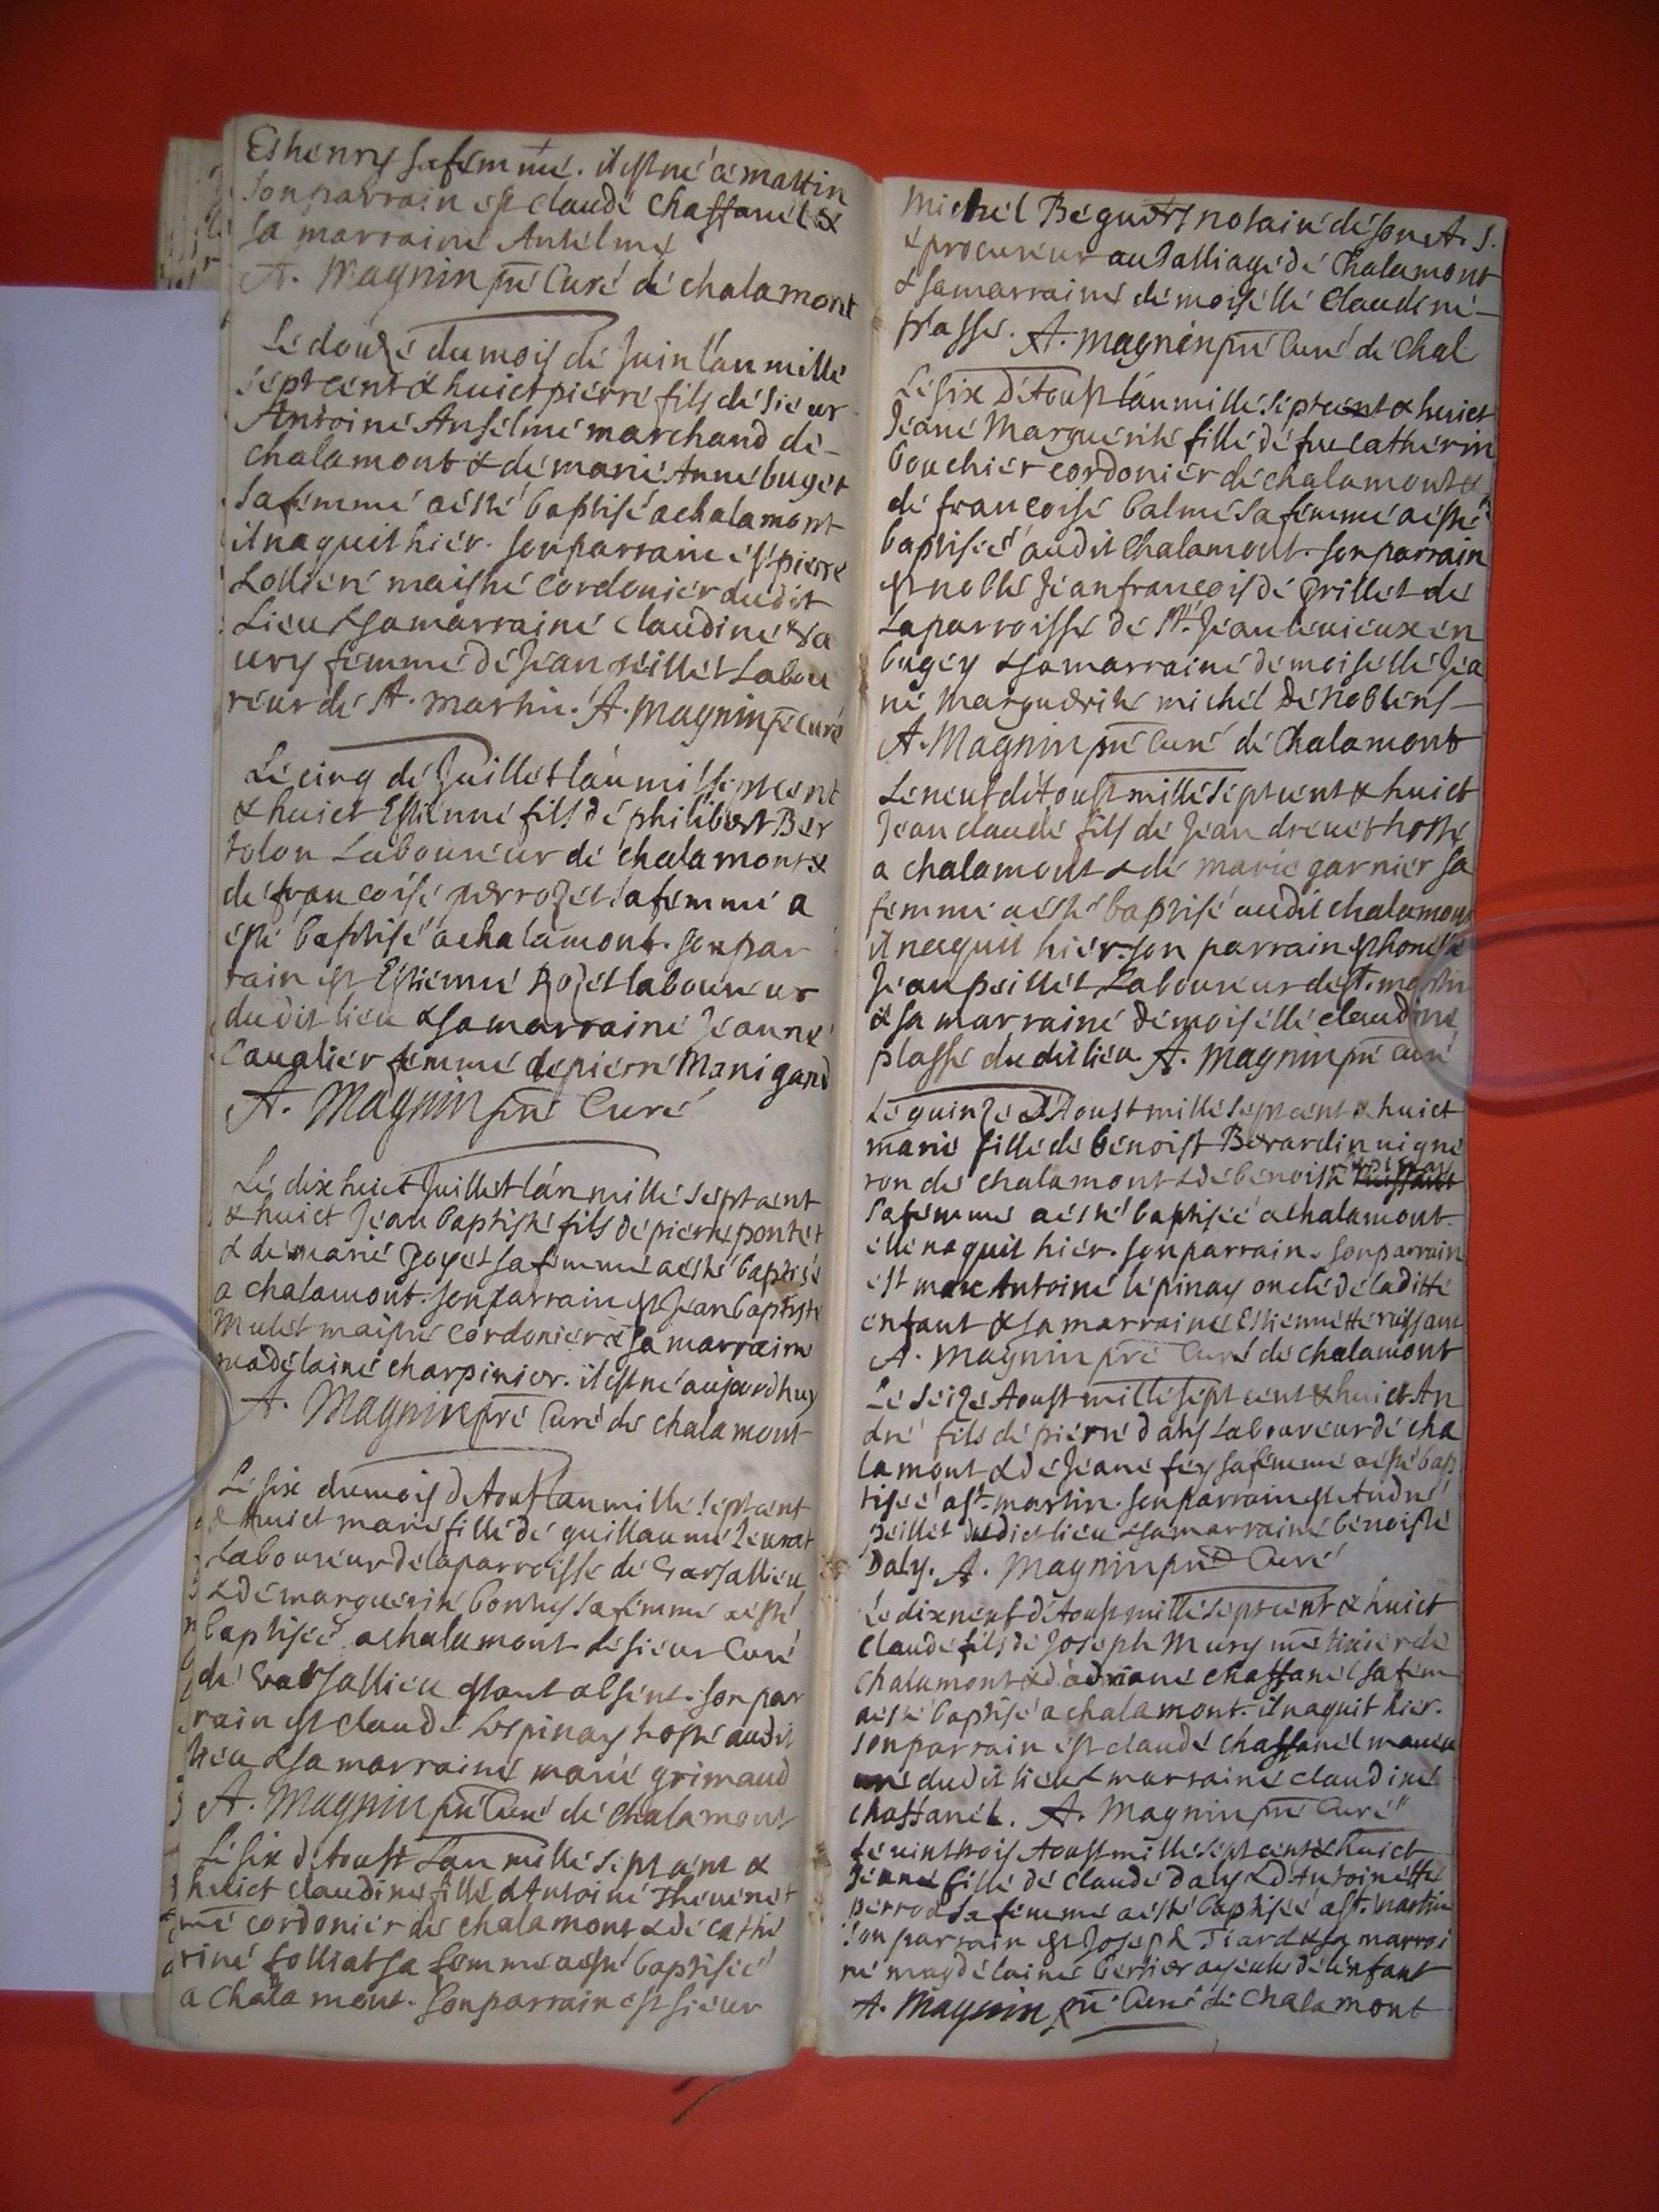 Et henry sa femme. il est né ce mattin
son parrain est claude Chaffanel &
sa marraine Anselme
A. Magnin pre Curé de chalamont
Le douze du mois de Juin l'an mille
sept cent & huict pierre fils de sieur
Antoine Anselme marchand de
chalamont & de marie Anne buget
sa femme a esté baptisé a chalamont
il naquit hier. son parrain est pierre
maistre cordonier dudit
Lieu & sa marraine claudine
ury femme de Jean peillet Labou
reur de st. martin. A. Magnin pre curé
Le cinq de Juillet l'an mil sept cent
& huict Estienne fils de philibert Ber
tolon Laboureur de chalamont &
de francoise perrozet sa femme a
esté baptisé a chalamont. son par
rain est Estienne Rozet laboureur
dudit lieu & sa marraine Jeanne
Caualier femme de pierre Manigand
A. Magnin pre Curé
Le dix huict Juillet l'an mille sept cent
& huict Jean baptiste fils de pierre pontet
& de marie goyet sa femme a esté baptisé
a chalamont. son parrain est Jean baptiste
Mulet maistre cordonier & sa marraine
madelaine charpinier. il est né aujourdhuy
A. Magnin pre Curé de chalamont
Le six du mois d'Aoust l'an mille sept cent
& huict marie fille de guillaume
Laboureur de la parroisse de Varsallieu
& de marguerite sa femme a esté
baptisée a chalamont le sieur Curé
de Varsallieu estant absent. son par
rain est claude Lespinay hoste audit
lieu & sa marraine marie grimaud
A. Magnin pre Curé de Chalamont
Le six d'Aoust L'an mille sept cent &
huict claudine fille d'Antoine Theuenet
mre cordonier de chalamont & de cathe
rine Lolliat sa femme a esté baptisée
a chalamont. son parrain est sieur
Michel notaire de son A. S.
& procureur au Balliage de Chalamont
& sa marraine demoiselle Claudine
plasse. A. Magnin pre Curé de Chal
Le six D'Aoust l'an mille sept cent & huict
Jeane Marguerite fille de feu Catherin
bouchier cordonier de chalamont &
de francoise balme sa femme a esté
baptisée audit Chalamont. son parrain
est noble Jean francois de grillet de
La parroisse de st. Jean le uieux en
bugey & sa marraine demoiselle Jea
ne marguerite michel De Noblens
A. Magnin pre Curé de Chalamont
Le neuf d'Aoust mille sept cent & huict
Jean claude fils de Jean dreuet hoste
a chalamont & de marie garnier sa
femme a esté baptisé audit chalamont
il naquit hier. son parrain est honeste
Jean peillet Laboureur de st. martin
& sa marraine demoiselle claudine
plasse dudit lieu A. Magnin pre Curé
Le quinze D'Aoust mille sept cent & huict
marie fille de benoist Berardin uigne
ron de chalamont & de benoiste
sa femme a esté baptisée a chalamont.
elle naquit hier. son parrain. son parrain
est marc Antoine lépinay oncle de laditte
enfant & sa marraine Estiennette
A. Magnin pre Curé de chalamont
Le seize Aoust mille sept cent & huict An
dré fils de pierre daly Laboureur de cha
lamont & de Jeane fey sa femme a esté bap
tisée a st. martin. son parrain est André
peillet dudict lieu & sa marraine benoiste
Daly. A. Magnin pre Curé
Le dixneuf d'Aoust mille sept cent & huict
Claude fils de Joseph Mury mre tixier de
Chalamont & d'adriane chaffanel sa fem
a esté baptisé a chalamont. il naquit hier.
son parrain est claude chaffanel
dudit lieu & marraine claudine
chaffanel. A. Magnin pre Curé
Le uint trois Aoust mille sept cent & huict
Jeane fille de Claude Daly & d'Antoinette
perrod sa femme a esté baptisée a st. martin
son parrain est Joseph Tiard & sa marrai
ne magdelaine berrier ayeule de l'enfant
A. Magnin pre Curé de Chalamont